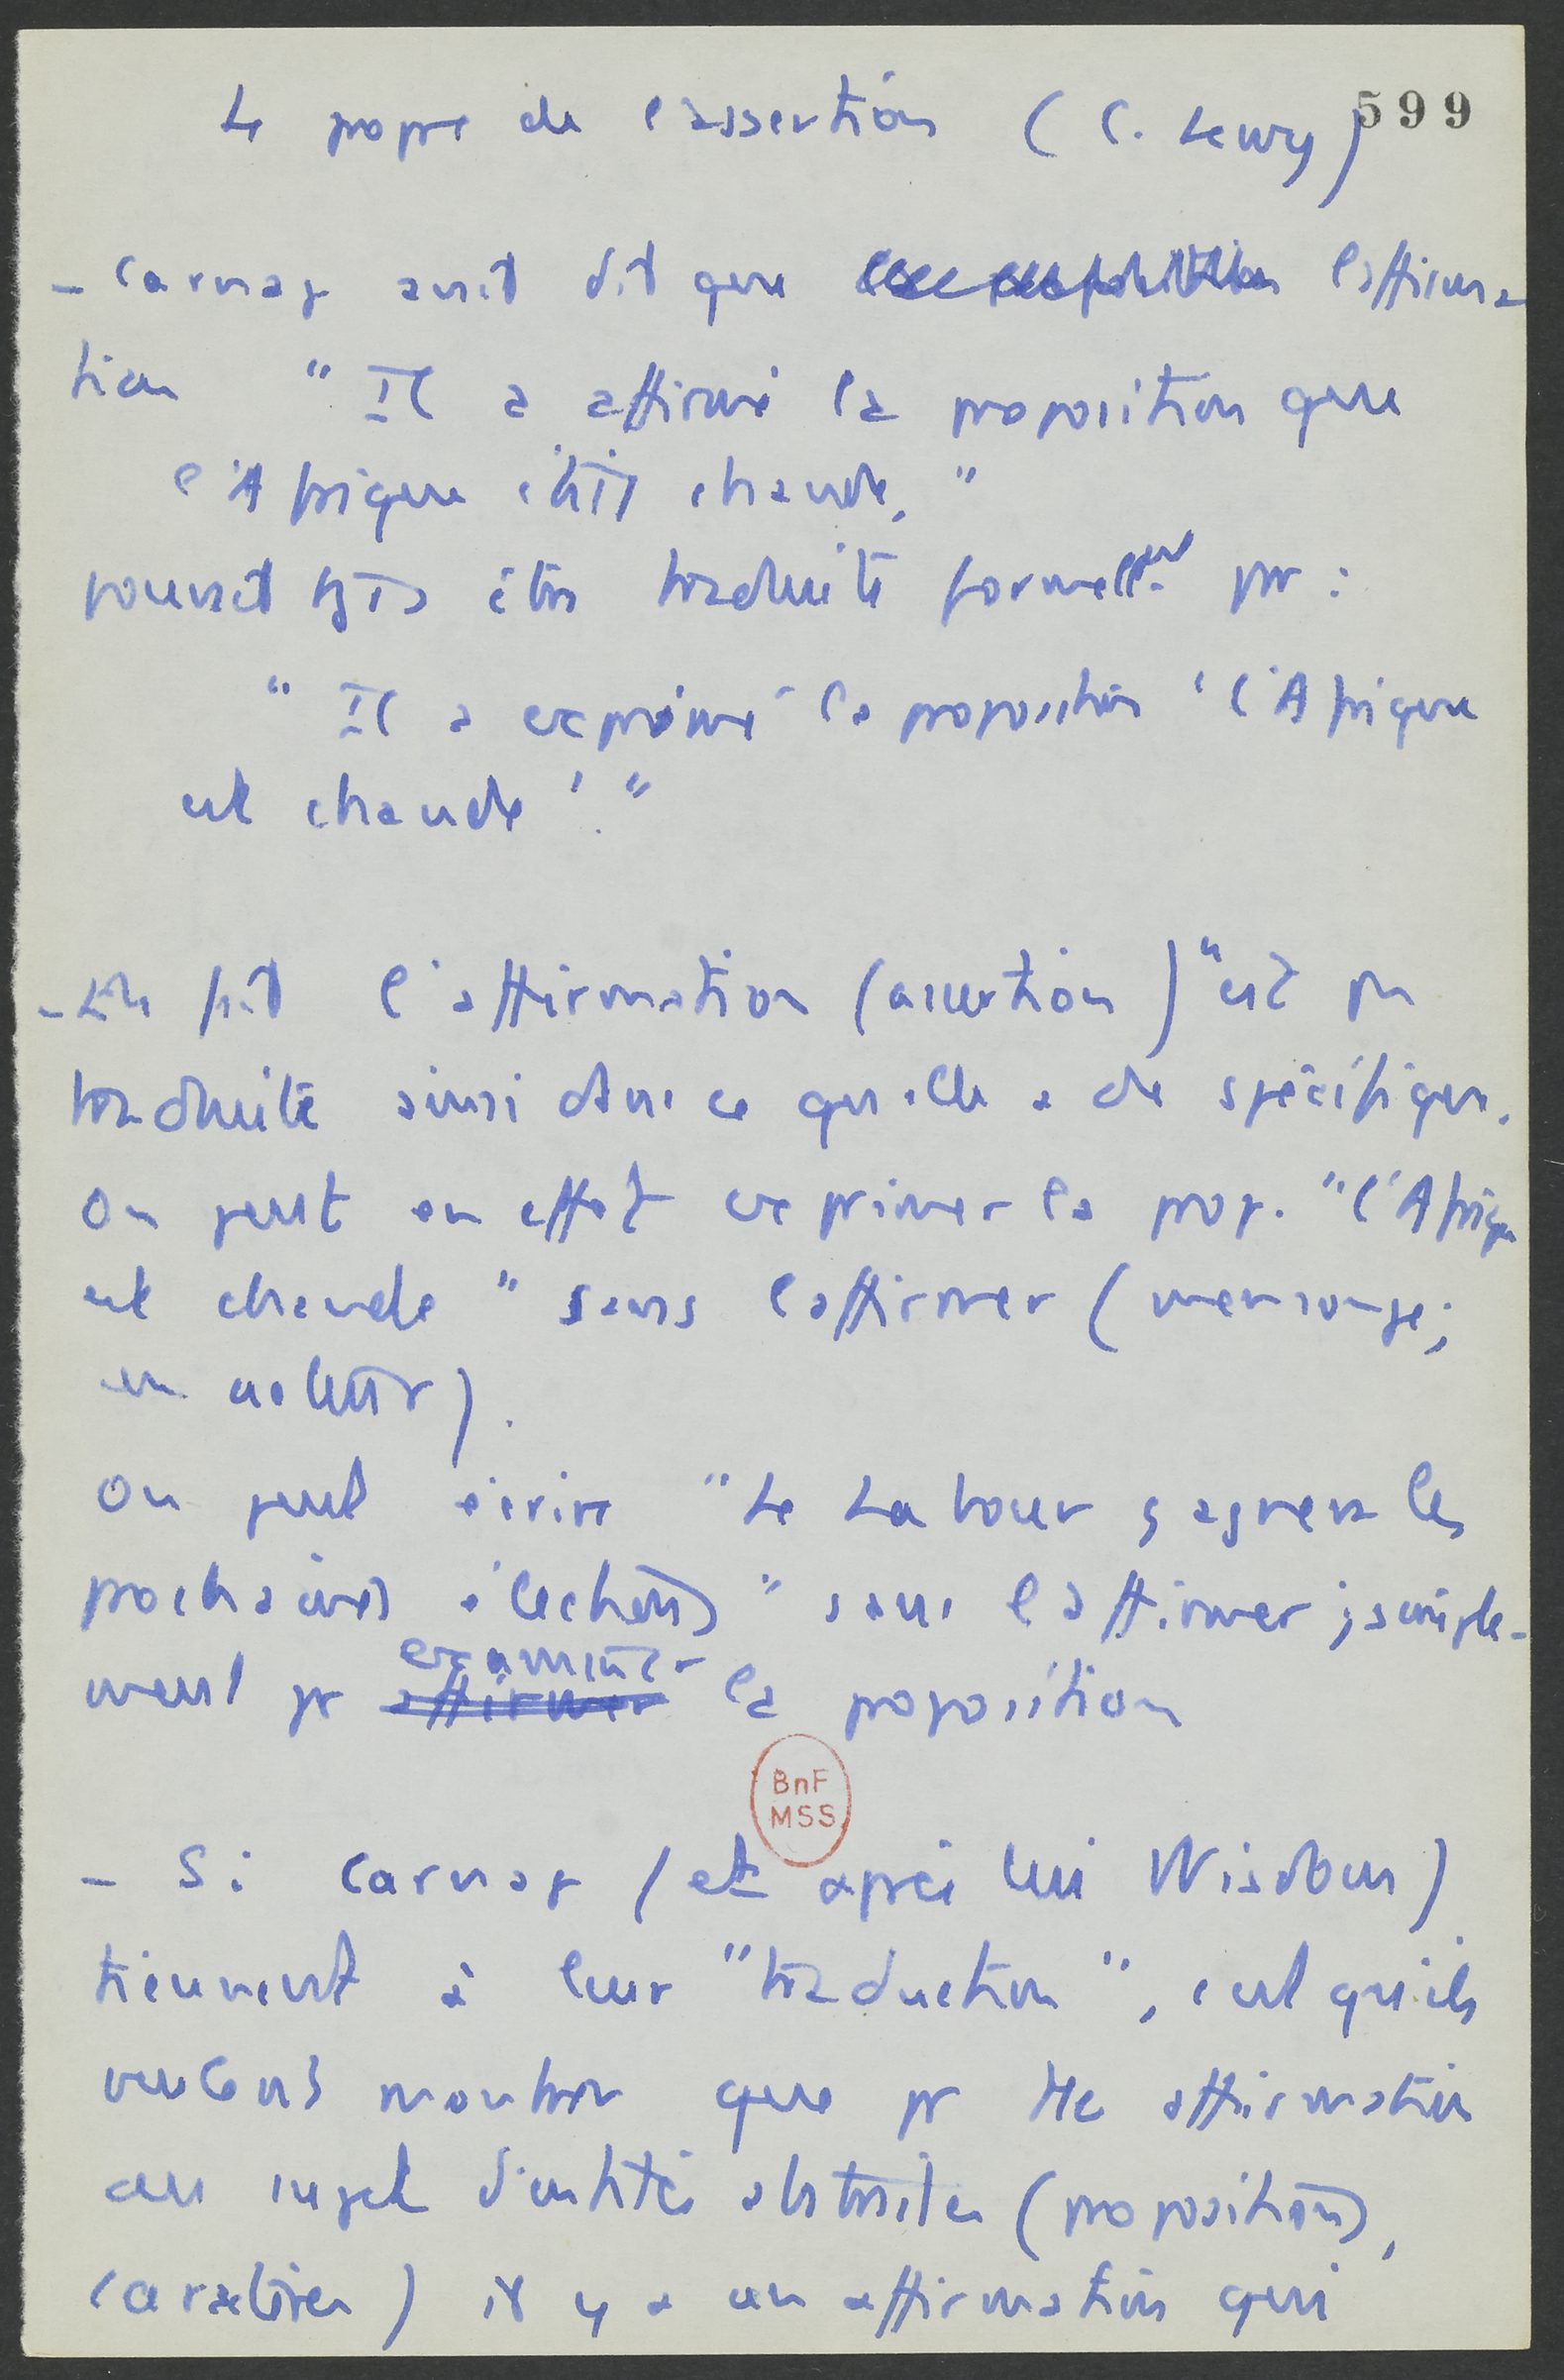 Le propre de l'assertion (C. Lewy) 599
- Carnap avait dit que l'affirma-
tion " Il a affirmé la proposition que
l'Afrique était chaude. "
pouvait être traduite formellemt par :
" Il a exprimé la proposition ' l'Afrique
est chaude '. "
- En fait l'affirmation (assertion) n'est pas
traduite ainsi dans ce qu'elle a de spécifique.
On peut en effet exprimer la prop. " l'Afrique
est chaude " sans l'affirmer (mensonge ;
un acteur).
On peut écrire " Le Labour gagnera les
prochaines élections " sans l'affirmer ; simple-
ment pr examiner affirmer la proposition
BnF
MSS
- Si Carnap (et après lui Wisdom)
tiennent à leur " traduction ", c'est qu'ils
veulent montrer que pr tte affirmation
au sujet d'entités abstraites (propositions,
caractères) il y a une affirmation qui